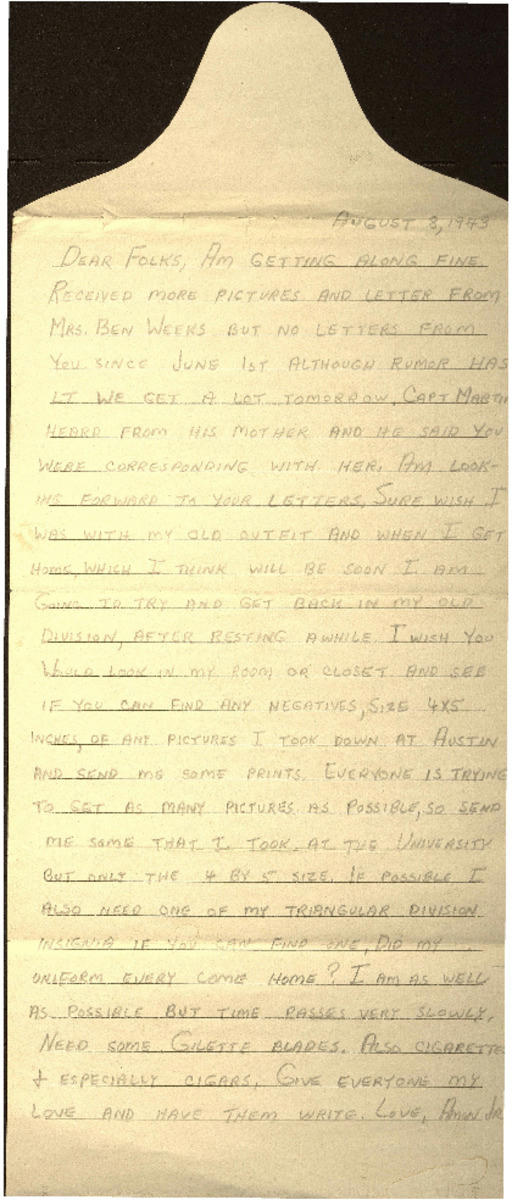 AUGUST 3, 1943
DEAR FOLKS, AM GETTING ALONG FINE.
RECEIVED MORE PICTURES AND LETTER FROM
MRS. BEN WEEKS BUT NO LETTERS FROM
YOU SINCE JUNE 1ST ALTHOUGH RUMOR HAS
IT WE GET A LOT TOMORROW. CAPT MARTIN
HEARD FROM HIS MOTHER AND HE SAID YOU
WERE CORRESPONDING WITH HER. AM LOOK-
ING FORWARD TO YOUR LETTERS. SURE WISH I
WAS WITH MY OLD OUTFIT AND WHEN I GET
HOME, WHICH I THINK WILL BE SOON I AM
GOING TO TRY AND GET BACK IN MY OLD
DIVISION, AFTER RESTING AWHILE. I WISH YOU
WOULD LOOK IN MY ROOM OR CLOSET AND SEE
IF YOU CAN FIND ANY NEGATIVES, SIZE 4X5
INCHES, OF ANY PICTURES I TOOK DOWN AT AUSTIN
AND SEND ME SOME PRINTS. EVERYONE IS TRYING
TO GET AS MANY PICTURES AS POSSIBLE, SO SEND
ME SOME THAT I TOOK AT THE UNIVERSITY
BUT ONLY THE 4 BY 5 SIZE. IF POSSIBLE I
ALSO NEED ONE OF MY TRIANGULAR DIVISION
INSIGNIA IF YOU CAN FIND ONE, DID MY
UNIFORM EVERY COME HOME? I AM AS WELL
AS POSSIBLE BUT TIME PASSES VERY SLOWLY.
NEED SOME GILETTE BLADES. ALSO CIGARETTE
+ ESPECIALLY CIGARS. GIVE EVERYONE MY
LOVE AND HAVE THEM WRITE. LOVE, AMON JR